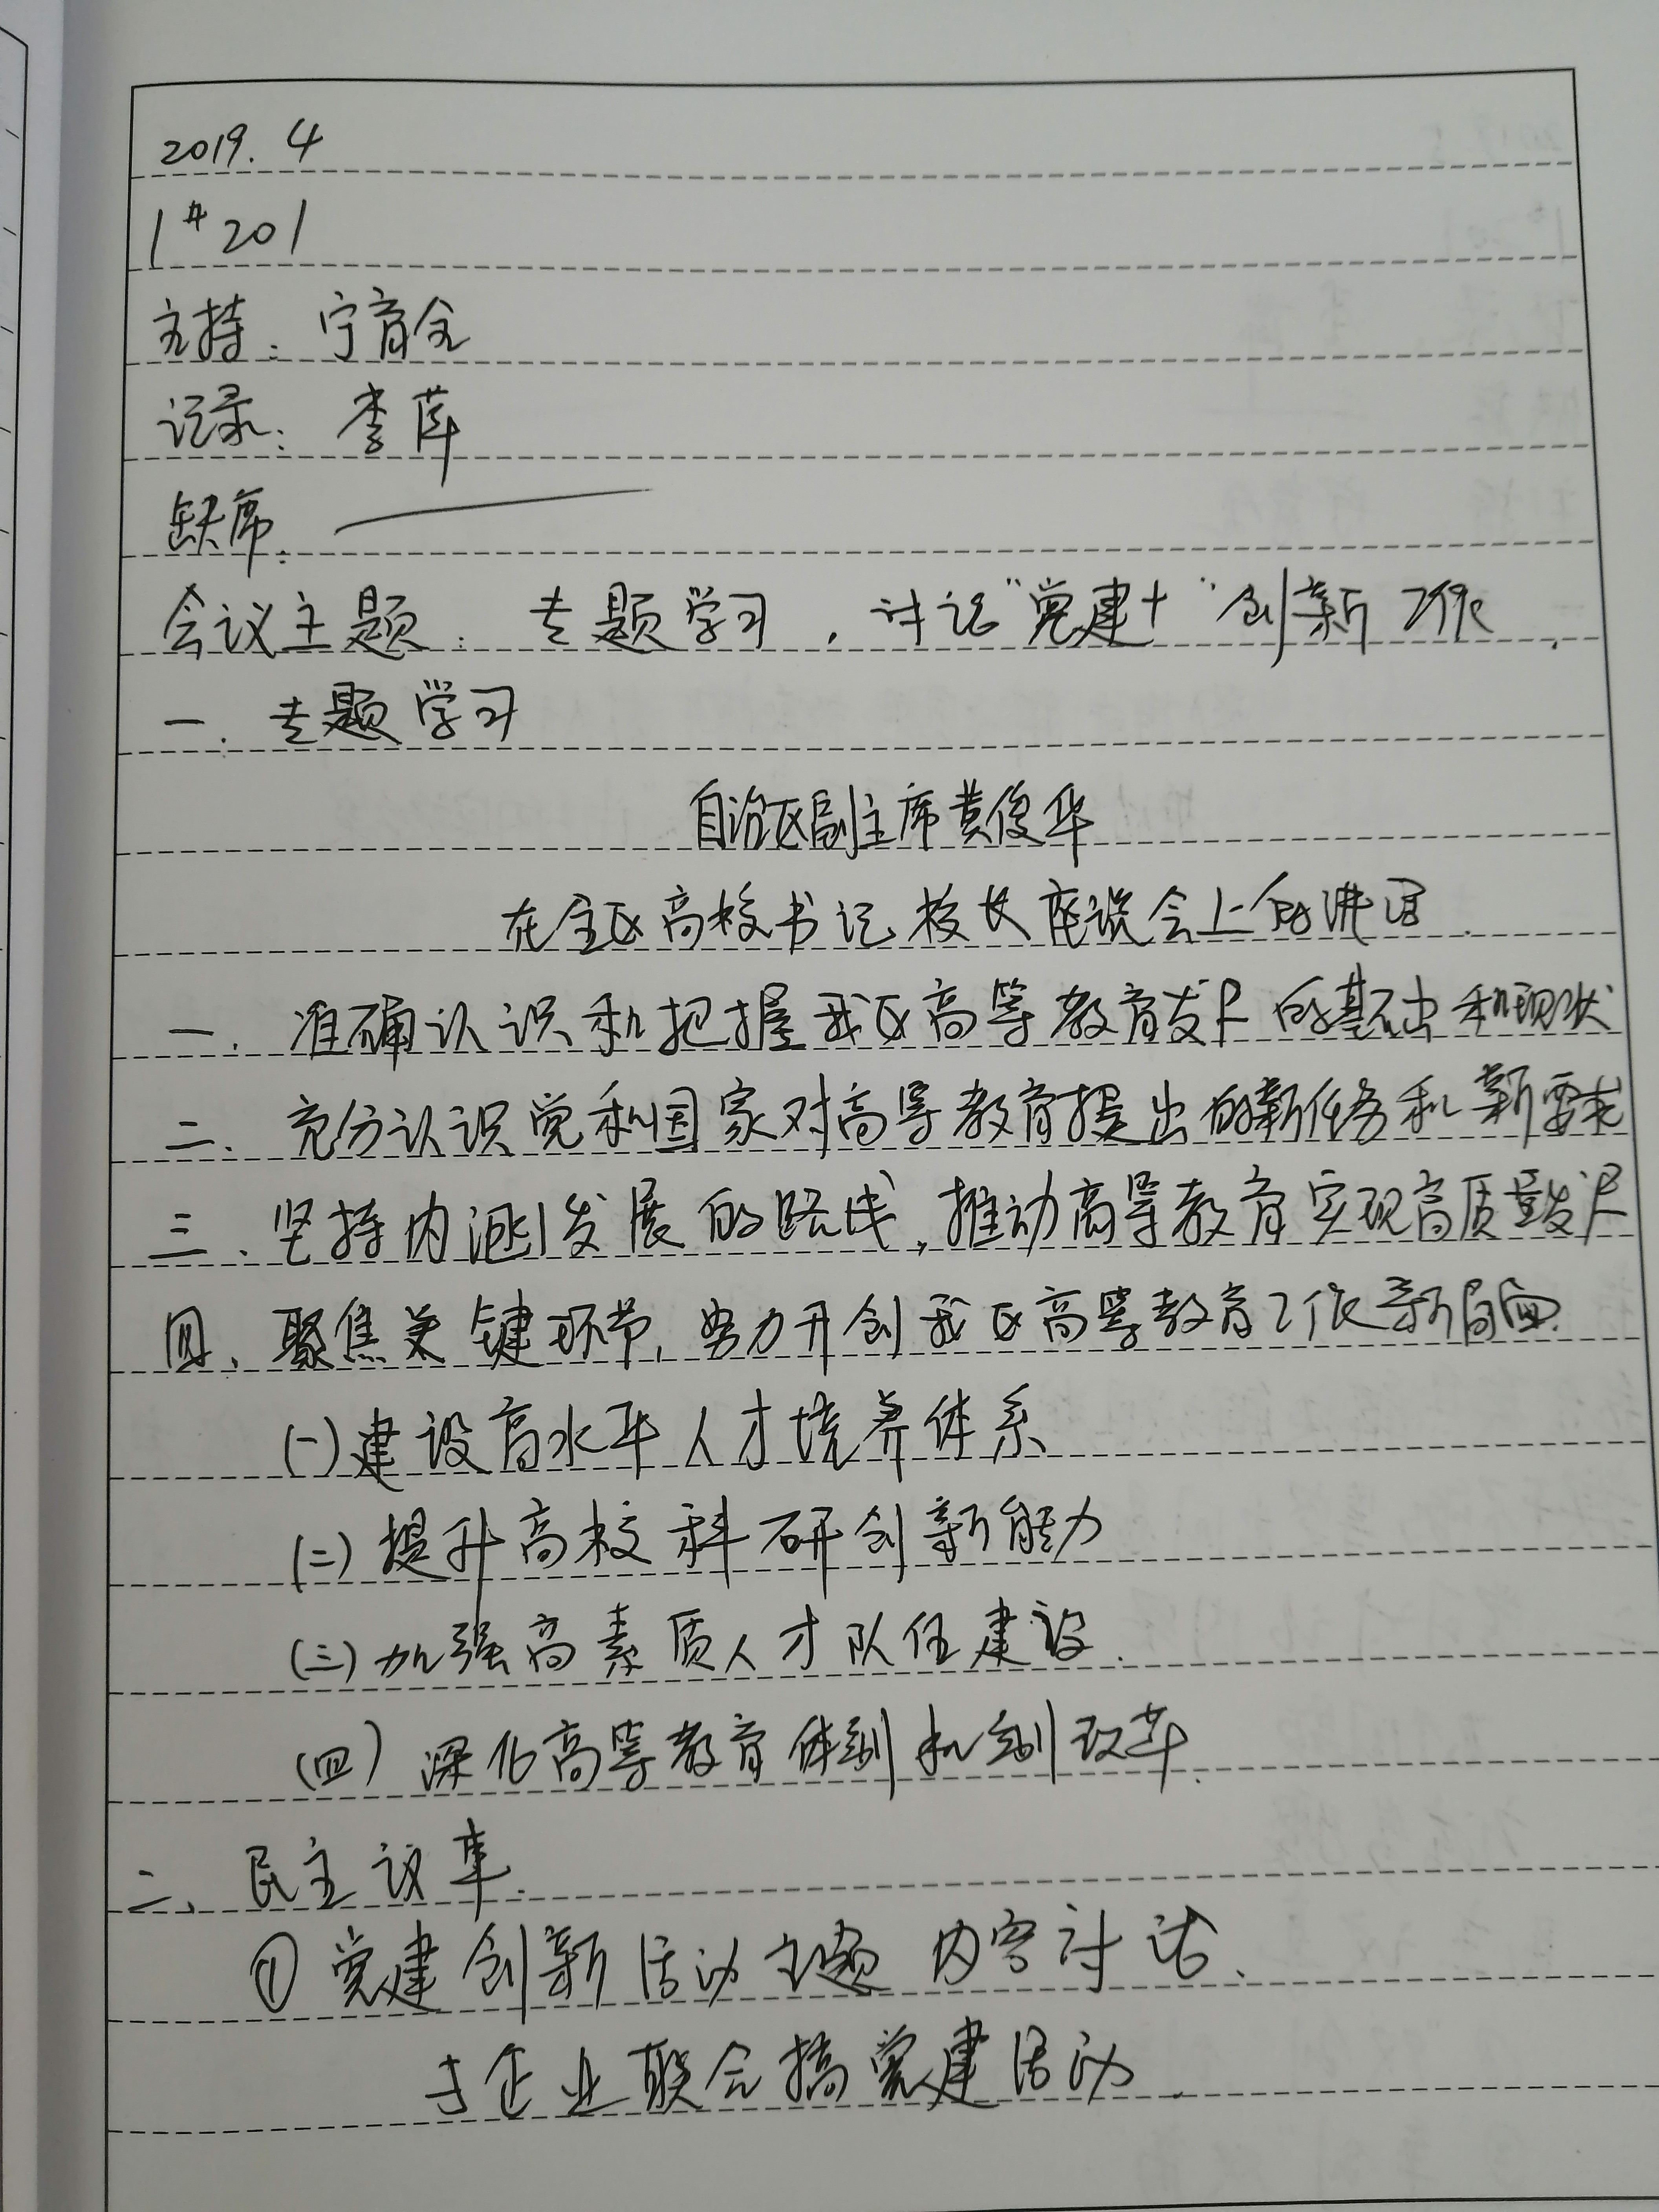 2019.4
1#201
主持：宁育全
记录：李萍
缺席：
会议主题：专题学习，讨论"党建+"创新工作.
一.专题学习
自治区副主席黄俊华
在全区高校书记校长座谈会上的讲话.
一.准确认识和把握我区高等教育发展的基础和现状
二.充分认识党和国家对高等教育提出的新任务和新要求
三、坚持内涵发展的路线,推动高等教育实现高质量发展
四、聚焦关键环节,努力开创我区高等教育工作新局面.
(一)建设高水平人才培养体系
(二)提升高校科研创新能力
(三)加强高素质人才队伍建设.
(四)深化高等教育体制机制改革.
二、民主议事.
①党建创新活动主题内容讨论、
与企业联合搞党建活动.